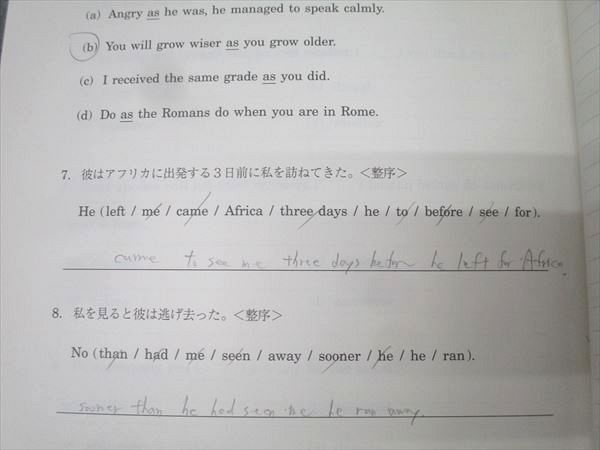 (a) Angry as he was, he managed to speak calmly.
(b) You will grow wiser as you grow older.
(c) I received the same grade as you did.
(d) Do as the Romans do when you are in Rome.
7. 彼はアフリカに出発する3日前に私を訪ねてきた。<整序>
He (left / me / came / Africa / three days / he / to / before / see / for).
came to see me three days before he left for Africa.
8. 私を見ると彼は逃げ去った。<整序>
No (than / had / me / seen / away / sooner / he / he / ran).
sooner than he had seen me he ran away.